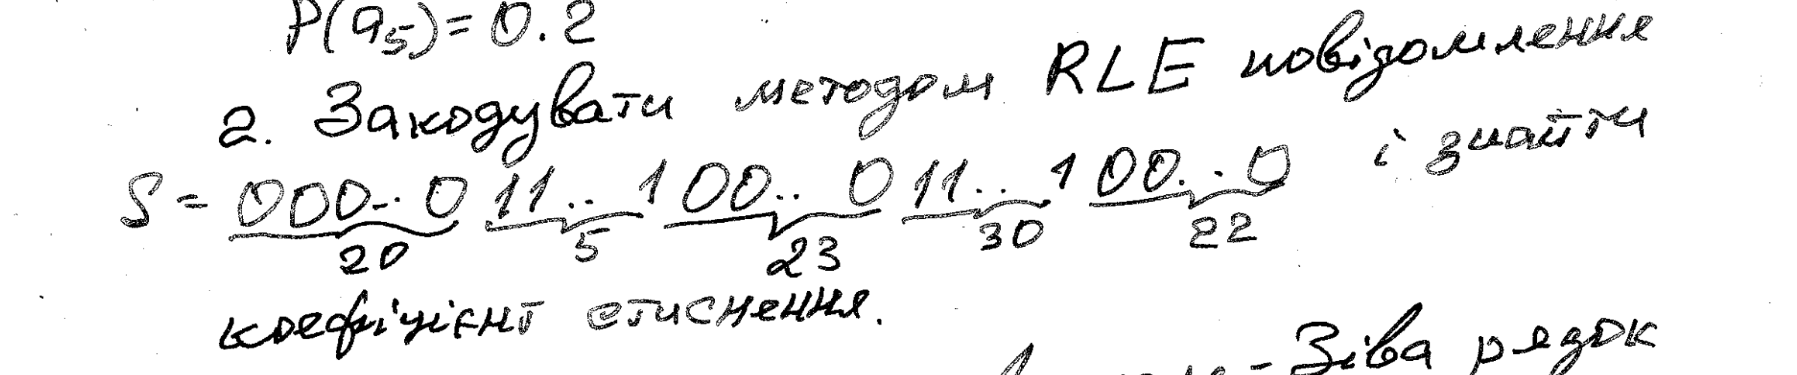 P(a5)=0.2
2. Закодувати методом RLE повідомлення
S = 000...0 11...1 00...0 11...1 00...0 і знайти
20 5 23 30 22
коефіцієнт стиснення.
- Зіва рядок